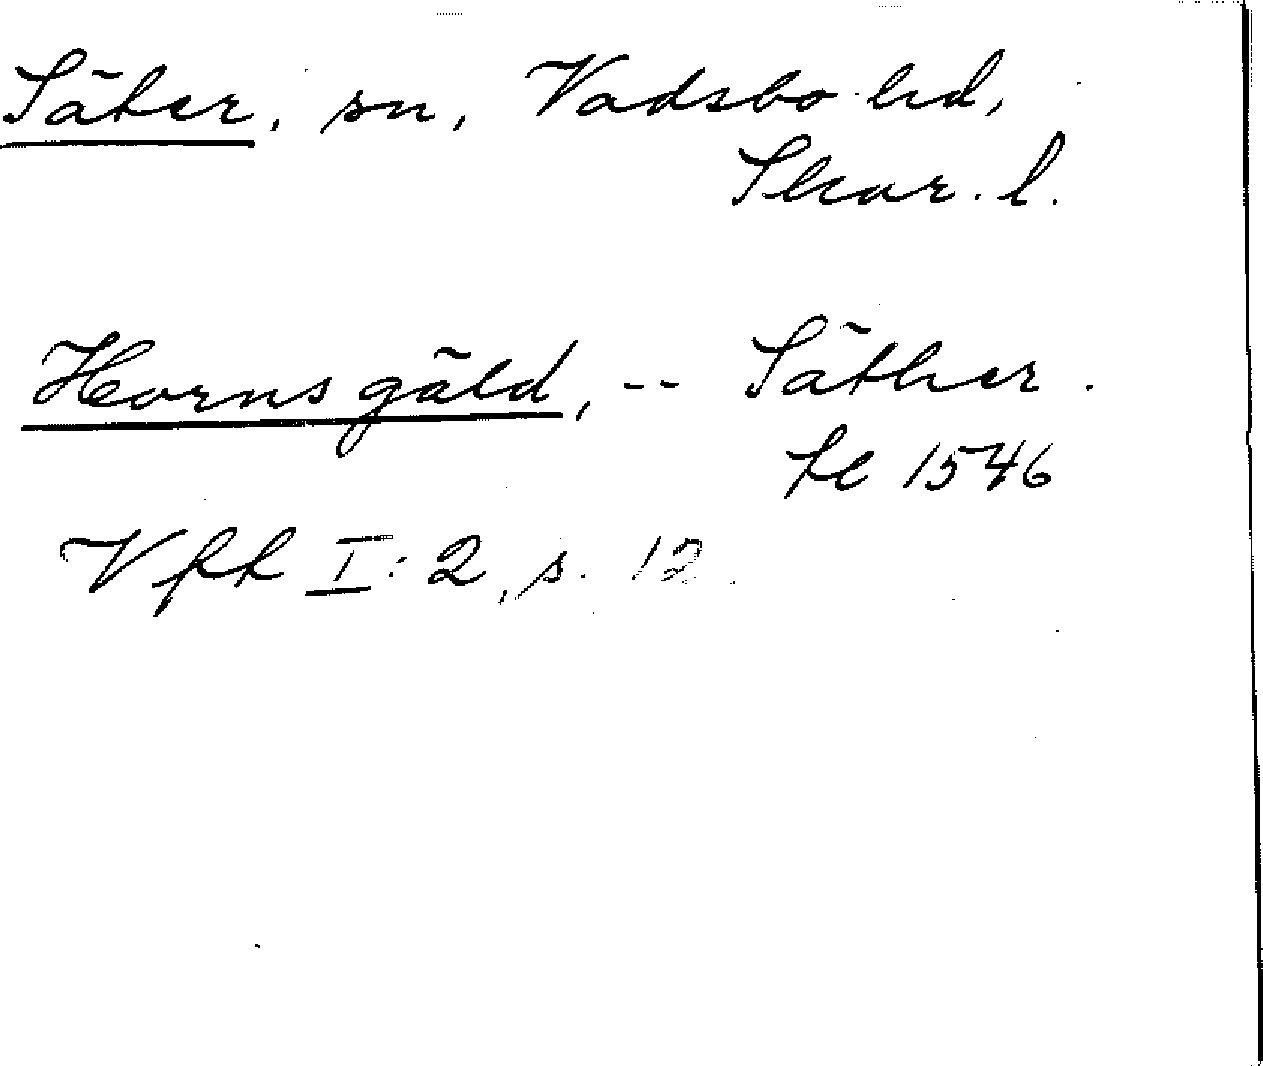 Säter, sn, Vadsbo hd,
Skar. l.
Hornsgäld, -- Säther.
fe 1546
Vfh I:2, s. 12.